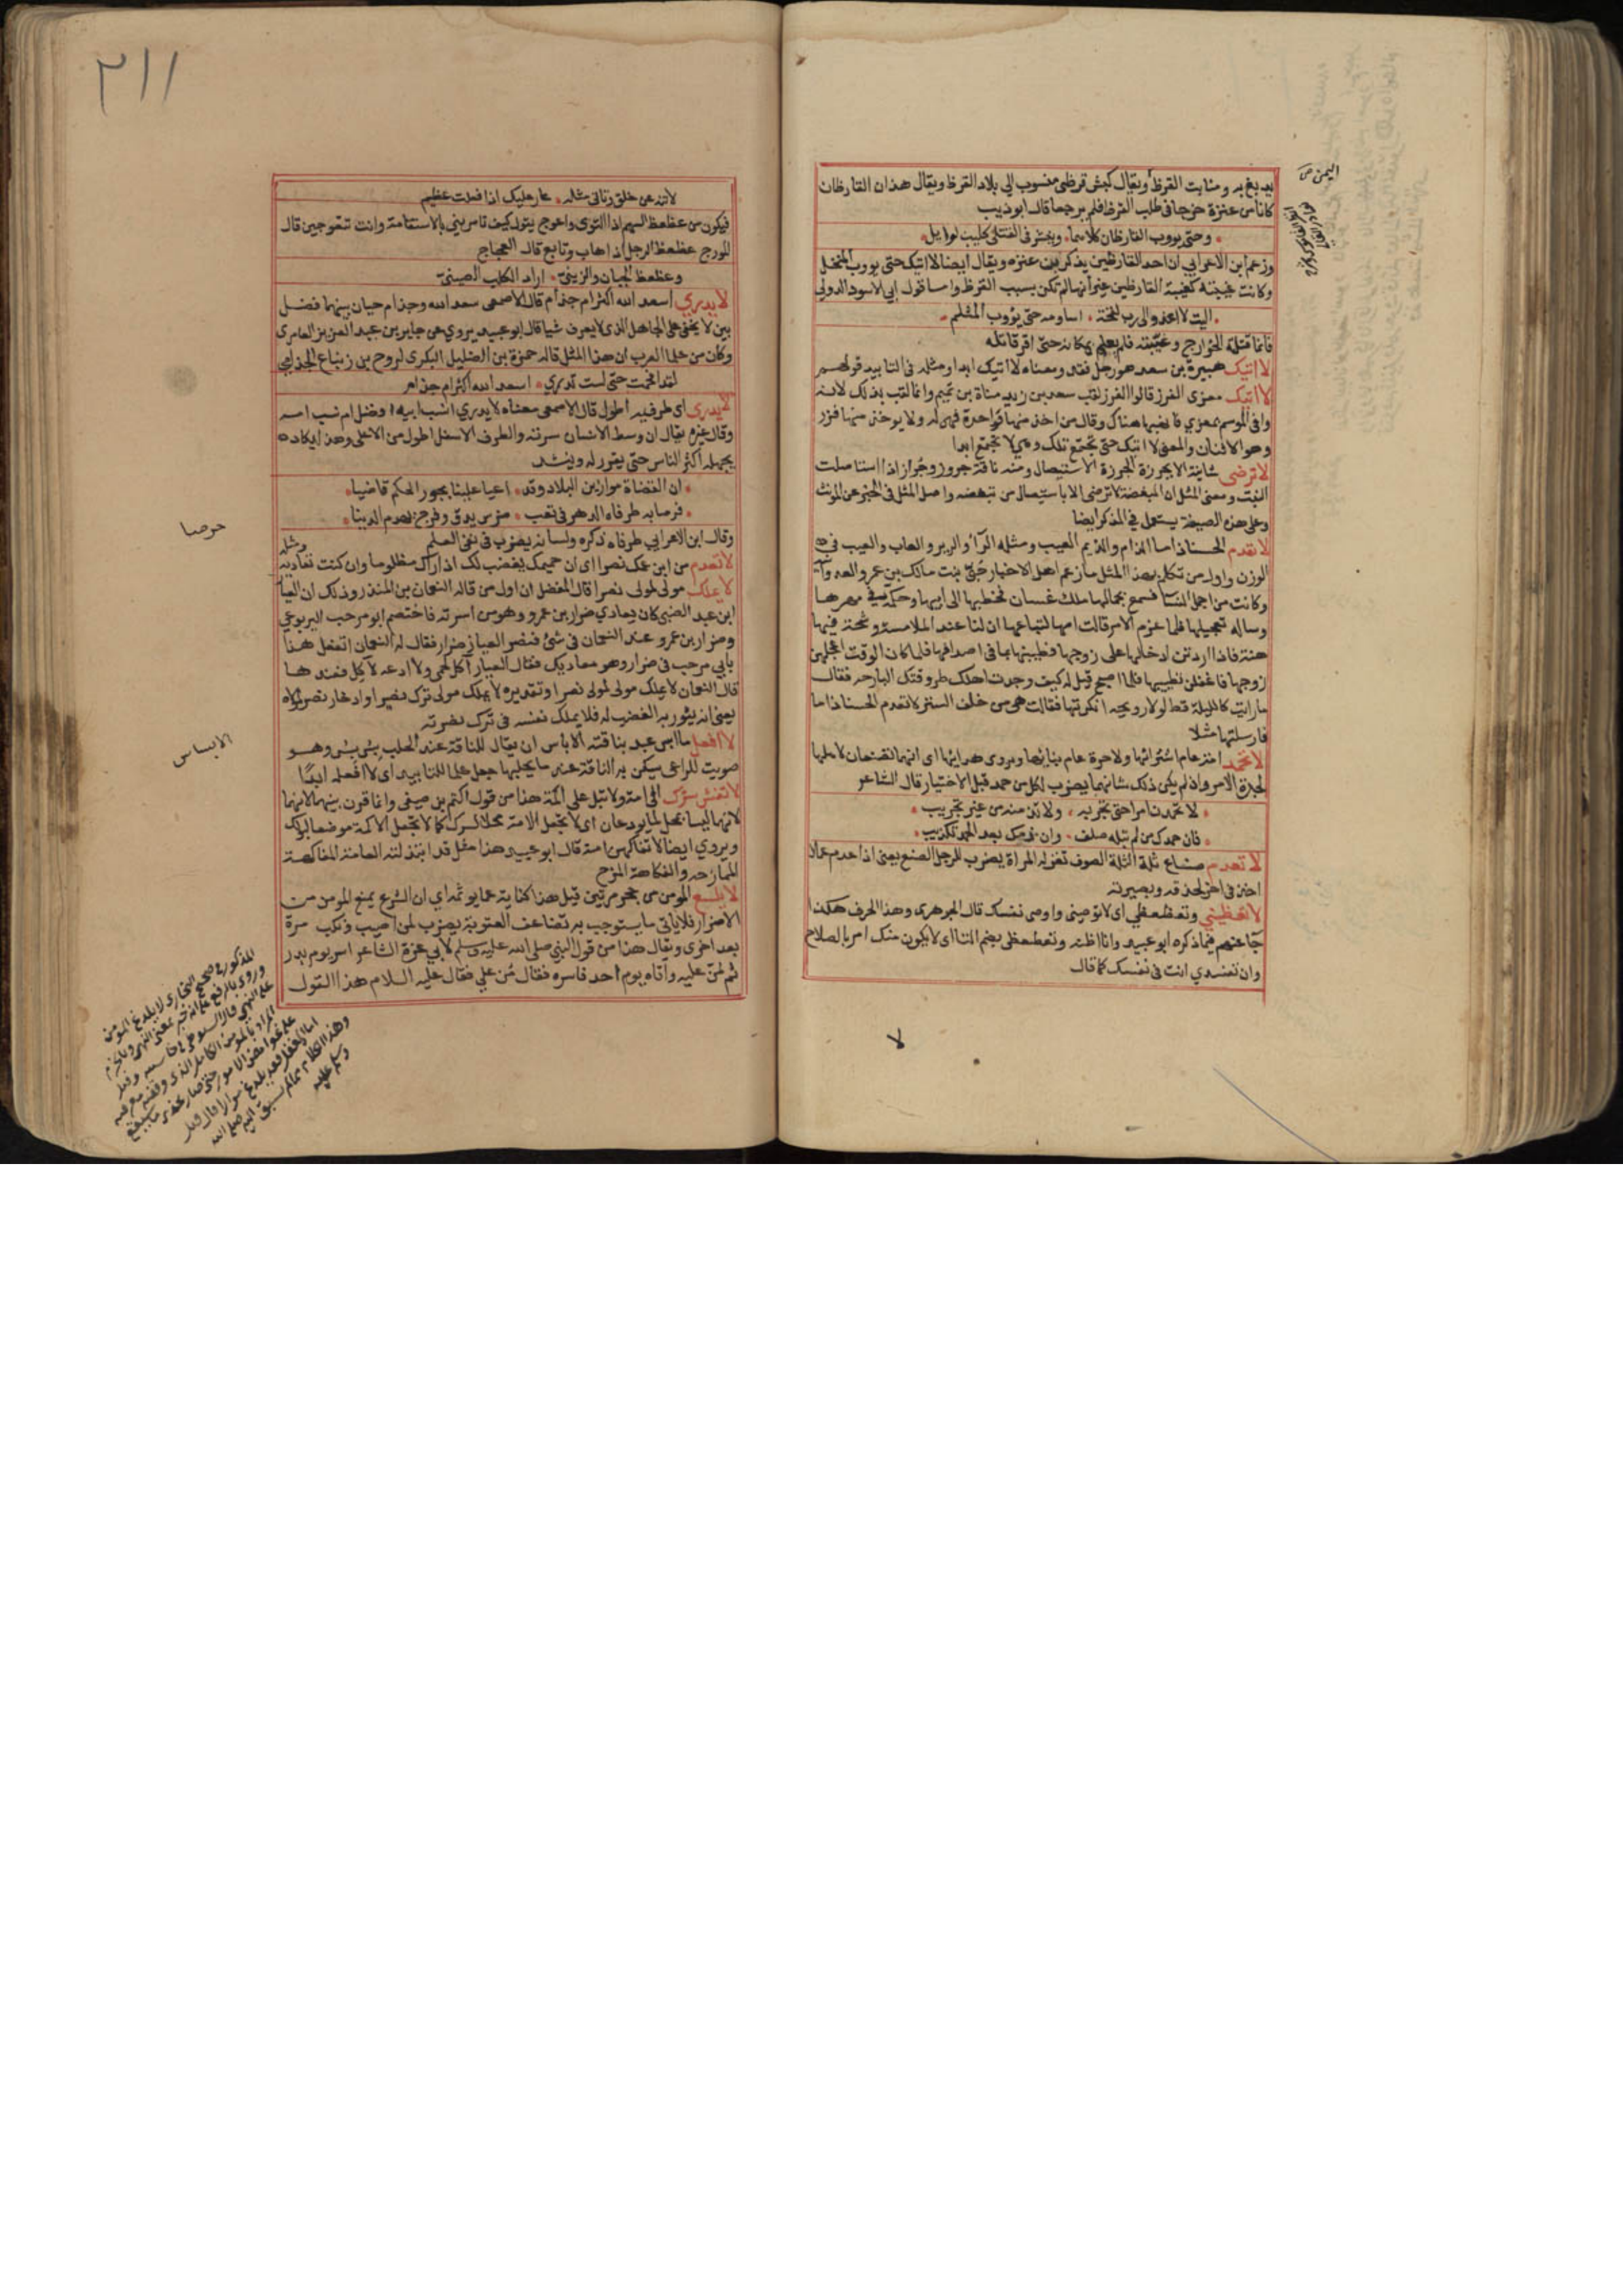 يدبغ به ومنابت القرظ ويقال كبش قرظى منسوب الى بلاد القرظ ويقال هذان القارظان
كانا من عنزة خرجا فى طلب القرظ فلم يرجعا قال ابو ذيب
وحتى يووب القارظان كلاهما وينشر فى القتلى كليب لوايل
وزعم ابن الاعرابي ان احد القارظين يذكر بن عنزه ويقال ايضا لا اتيك حتى يووب المنخل
وكانت غيبته كغيبة القارظين غير انها لم تكن بسبب القرظ واما قول ابي الاسود الدولى
اليت لا اغدو الى رب لقحة اساومه حتى يؤوب المثلم
فانما قتلته الخوارج وغيبته فلم يعلم بمكانه حتى اقر قاتله
لا اتيك هبيرة بن سعد هو رجل فقد ومعناه لا اتيك ابدا ومثله فى التابيد قولهم
لا اتيك معزى الفزر قالوا الفزر لقب سعد بن زيد مناة بن تميم وانما لقب بذلك لانه
وافى الموسم بمعزي فانهبها هناك وقال من اخذ منها واحدة فهى له ولا يوخذ منها فزر
وهو الاثنان والمعنى لا اتيك حتى تجتمع تلك وهي لا تجتمع ابدا
لا ترضى شانية الا بجرزة الجرزة الاستيصال ومنه ناقة جروز وجراز اذا استاصلت
النبت ومعنى المثل ان المبغضة لا ترضى الا باستيصال من تبغضه واصل المثل فى الخبر عن المونث
وعلى هذه الصيغة يستعمل في المذكر ايضا
لا تعدم الحسنا ذاما الذام والذيم العيب ومثله الراز والرير والعاب والعيب فى
الوزن واول من تكلم بهذا المثل فيما زعم اهل الاخبار حبى بنت مالك بن عمرو العدوانية
وكانت من اجمل النسا فسمع بجمالها ملك غسان فخطبها الى ابيها وحكمه في مهرها
وساله تعجيلها فلما عزم الامر قالت امها لتباعها ان لنا عند الملامسة رشحة فيها
هنة فاذا اردتن ادخالها على زوجها فطيبنها بما فى اصدافها فلما كان الوقت اعجلهن
زوجها فاغفلن تطييبها فلما اصبح قيل له كيف وجدت اهلك طروقتك البارحه فقال
ما رايت كالليلة قط لولا رويحه انكرتها فقالت هى من خلف الستر لا تعدم الحسنا ذاما
فارسلتها مثلا
لا تحمد امة عام اشترائها ولا حرة عام بنائها ويروى هدائها اى انهما تتصنعان لاهلها
لجدة الامر واذ لم يكن ذلك شانهما يضرب لكل من حمد قبل الاختبار قال الشاعر
لا تحمدن امرا حتى تجربه ولا تذمنه من غير تجريب
فان حمدك من لم تبله صلف وان ذمك بعد الحمد تكذيب
لا تعدم صناع ثلة الثلة الصوف تغزله المراة يضرب للرجل الصنع يعنى اذا عدم عملا
اخذ فى اخر لحذقه وبصيرته
لا تعظيني وتعظعظي اى لا توصينى واوصى نفسك قال الجوهري وهذا الحرف هكذا
جا عنهم فيما ذكره ابو عبيد وانا اظنه وتعظعظى بضم التا اى لا يكون منك امر بالصلاح
وان تفسدي انت فى نفسك كما قال
لا
٢١١
لا تنه عن خلق وتاتى مثله عار عليك اذا فعلت عظيم
فيكون من عظعظ السهم اذا التوى واعوج يقول كيف تامريني بالاستقامة وانت تتعوجين قال
المورج عظعظ الرجل اذا هاب وتابع قال العجاج
وعظعظ الجبان والزينى اراد الكلب الصينى
لا يدري اسعد الله اكثر ام جذام قال الاصمعى سعد الله وجذام حيان بينهما فضل
بين لا يخفى على الجاهل الذى لا يعرف شيا قال ابو عبيد يروي عن جابر بن عبد العزيز العامرى
وكان من علما العرب ان هذا المثل قاله حمزة بن الضليل البكرى لروح بن زنباع الجذامي
لقد افحمت حتى لست تدري اسعد الله اكثر ام جذام
لا يدرى اى طرفيه اطول قال الاصمعى معناه لا يدري انسب ابيه افضل ام نسب امه
وقال غيره يقال ان وسط الانسان سرته والطرف الاسفل اطول من الاعلى وهذا يكاد
يجهله اكثر الناس حتى يقرر له وينشد
ان القضاة موازين البلاد وقد اعيا علينا بجور الحكم قاضينا
قد صابه طرفاه الدهر فى تعب ضرس يدق وفرج يهدم الدينا
وقال ابن الاعرابي طرفاه ذكره ولسانه يضرب فى نفى العلم
ومثله
لا تعدم من ابن عمك نصرا اى ان حميمك يغضب لك اذا راك مظلوما وان كنت تعاديه
لا يملك مولى لمولى نصرا قال المفضل ان اول من قاله النعمان بن المنذر وذلك ان العيار
ابن عبد الضبى كان يعادي ضرار بن عمرو وهو من اسرته فاختصم ابو مرحب اليربوعي
وضرار بن عمرو عند النعمان فى شئ فنصر العيار ضرار فقال له النعمان اتفعل هذا
بابي مرحب فى ضرار وهو معاديك فقال العيار آكل لحمى ولا ادعه لآكل فعندها
قال النعمان لا يملك مولى لمولى نصرا وتقديره لا يملك مولى ترك نصر او ادخار نصر لمولاه
يعنى انه يثور به الغضب له فلا يملك نفسه فى ترك نصرته
لا افعل ما ابس عبد بناقته الابساس ان يقال للناقة عند الحلب بس بس وهو
صويت للراعى يسكن به الناقة عند ما يحلبها جعل علما للتابيد اى لا افعله ابدا
لا تفش سرك الى امة ولا تبل على اكمة هذا من قول اكثم بن صيفى وانما قرن بينهما لانهما
لانهما ليسا بمحل لما يودعان اى لا تجعل الامة محلا لسرك كما لا تجعل الاكمة موضعا لبولك
ويروي ايضا لا تفاكهن امة قال ابو عبيد هذا مثل قد ابتذلته العامة المفاكهة
الممازحه والفكاهة المزح
لا يلسع المومن من جحر مرتين قيل هذا كناية عما يوثمه اي ان الشرع يمنع المومن من
الاضرار فلا ياتى ما يستوجب به تضاعف العقوبة يضرب لمن اصيب ونكب مرة
بعد اخرى ويقال هذا من قول النبى صلى الله عليه وسلم لابي عزة الشاعر اسر يوم بدر
ثم من عليه واتاه يوم احد فاسره فقال من علي فقال عليه السلام هذا القول
الابساس
المذكور فى صحيح البخارى لا يلدغ المومن
وروى بالرفع على انه خبر بمعنى النهى وبالجزم
على النهى قال السيوطى
المراد بالمومن الكامل الذى وقفته معرفته
على غوامض الامور حتى صار يحذر مما سيقع
اما المغفل فقد يلدغ مرارا
وهذا الكلام مما لم يسبق اليه صلى الله